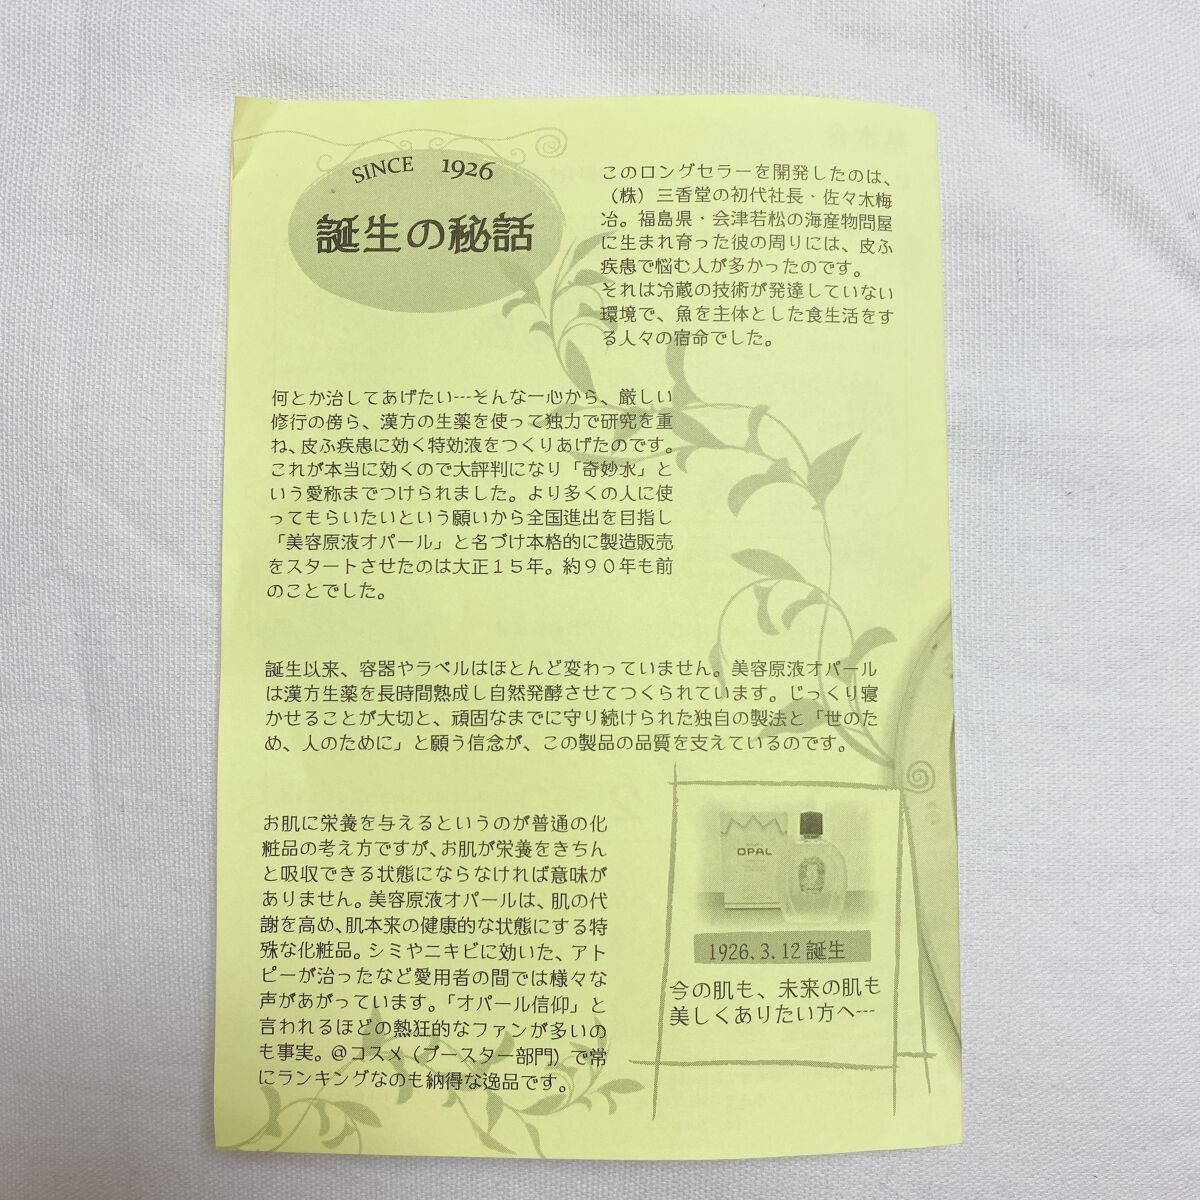 SINCE 1926
誕生の秘話
このロングセラーを開発したのは、
（株）三香堂の初代社長・佐々木梅
冶。福島県・会津若松の海産物問屋
に生まれ育った彼の周りには、皮ふ
疾患で悩む人が多かったのです。
それは冷蔵の技術が発達していない
環境で、魚を主体とした食生活をす
る人々の宿命でした。
何とか治してあげたい---そんな一心から、厳しい
修行の傍ら、漢方の生薬を使って独力で研究を重
ね、皮ふ疾患に効く特効液をつくりあげたのです。
これが本当に効くので大評判になり「奇妙水」と
いう愛称までつけられました。より多くの人に使
ってもらいたいという願いから全国進出を目指し
「美容原液オパール」と名づけ本格的に製造販売
をスタートさせたのは大正１５年。約９０年も前
のことでした。
誕生以来、容器やラベルはほとんど変わっていません。美容原液オパール
は漢方生薬を長時間熟成し自然発酵させてつくられています。じっくり寝
かせることが大切と、頑固なまでに守り続けられた独自の製法と「世のた
め、人のために」と願う信念が、この製品の品質を支えているのです。
お肌に栄養を与えるというのが普通の化
粧品の考え方ですが、お肌が栄養をきちん
と吸収できる状態にならなければ意味が
ありません。美容原液オパールは、肌の代
謝を高め、肌本来の健康的な状態にする特
殊な化粧品。シミやニキビに効いた、アト
ピーが治ったなど愛用者の間では様々な
声があがっています。「オパール信仰」と
言われるほどの熱狂的なファンが多いの
も事実。＠コスメ（ブースター部門）で常
にランキングなのも納得な逸品です。
OPAL
1926.3.12 誕生
今の肌も、未来の肌も
美しくありたい方へ---